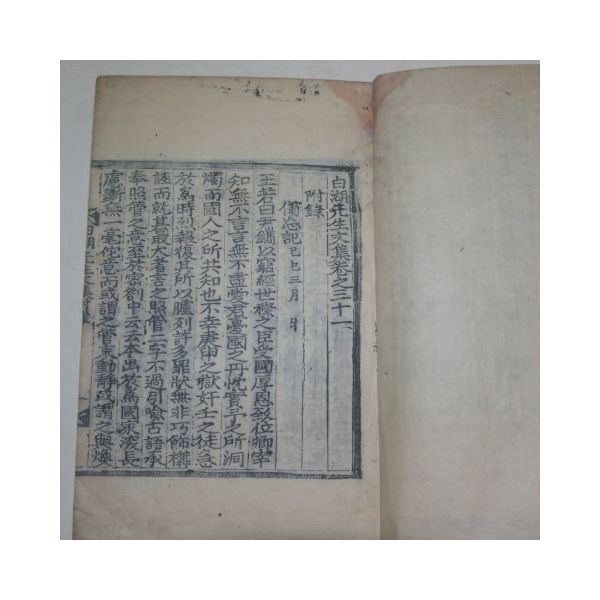 白湖先生文集卷之三十一
附錄
備忘記 己巳三月 日
王若曰尹鑴以窮經世祿之臣受國厚恩致位卿宰
知無不言言無不盡愛君憂國之丹忱實予之所洞
燭而國人之所共知也不幸庚申之獄奸壬之徒急
於爲時烈報復其所以臚列許多罪狀無非巧飾構
誣而就其最大者言之照管二字不過引喩古語承
奉照管之意至於密劄中云云本出於爲國家深長
慮斷無一毫佗意而或謂之管束動靜或謂之與煥